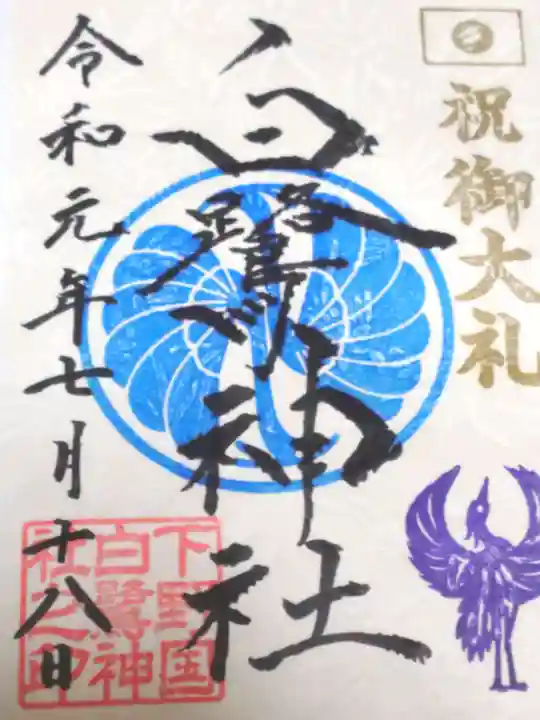 祝御大礼
白鷺神社
下野国
白鷺神
社之印
令和元年七月十八日